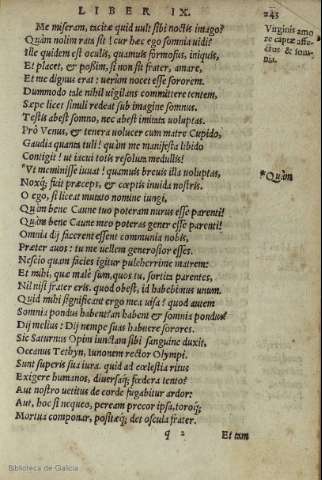 LIBER IX.
243
Me miseram, tacitæ quid uult sibi noctis imago?
Quàm nolim rata sit! cur hæc ego somnia uidi?
Ille quidem est oculis, quamuis formosus, iniquis,
Et placet, & possim, si non sit frater, amare,
Et me dignus erat: uerùm nocet esse sororem.
Dummodo tale nihil uigilans committere tentem,
Sæpe licet simili redeat sub imagine somnus.
Testis abest somno, nec abest imitata uoluptas.
Prô Venus, & tenera uolucer cum matre Cupido,
Gaudia quanta tuli! quàm me manifesta libido
Contigit! ut iacui totis resoluta medullis!
*Vt meminisse iuuat! quamuis breuis illa uoluptas,
Noxq́; fuit præceps, & cœptis inuida nostris.
O ego, si liceat mutato nomine iungi,
Quàm bene Caune tuo poteram nurus esse parenti!
Quàm bene Caune meo poteras gener esse parenti!
Omnia dij facerent essent communia nobis,
Præter auos: tu me uellem generosior esses.
Nescio quam facies igitur pulcherrime matrem:
At mihi, quæ malè sum, quos tu, sortita parentes,
Nil nisi frater eris. quod obest, id habebimus unum.
Quid mihi significant ergo mea uisa? quod autem
Somnia pondus habent? an habent & somnia pondus?
Dij melius: Dij nempe suas habuere sorores.
Sic Saturnus Opim iunctam sibi sanguine duxit,
Oceanus Tethyn, Iunonem rector Olympi.
Sunt superis sua iura. quid ad cœlestia ritus
Exigere humanos, diuersaq́; fœdera tento?
Aut nostro uetitus de corde fugabitur ardor:
Aut, hoc si nequeo, peream precor ipsa, toroq́;
Mortua componar, positæq́; det oscula frater.
q 2
Et tam
Virginis amo
re captæ affe-
ctus & som-
nia.
*Quàm
Biblioteca de Galicia